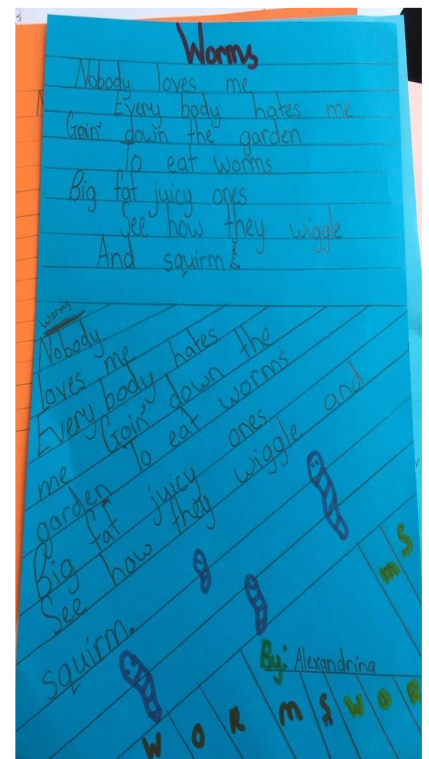 Worms
Nobody loves me
Every body hates me
Goin' down the garden
To eat worms
Big fat juicy ones
See how they wiggle
And squirm!
Worms
Nobody
loves me
Every body hates
me Goin' down the
garden To eat worms
Big fat juicy ones
See how they wiggle and
squirm.
m S
By: Alexandrina
W O R M S W O R